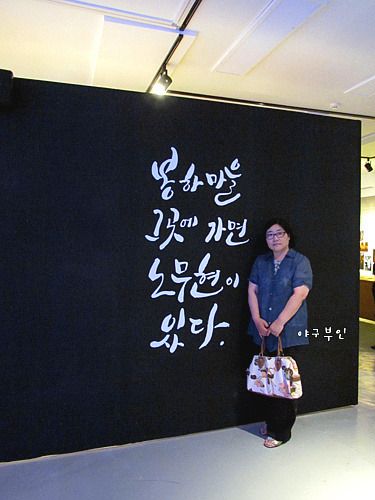 봉하마을
그곳에 가면
노무현이
있다.
야구부인